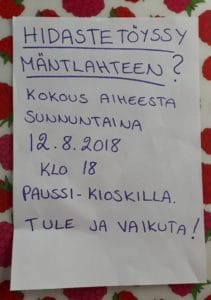 HIDASTETÖYSSY
MÄNTLAHTEEN?
KOKOUS AIHEESTA
SUNNUNTAINA
12.8.2018
KLO 18
PAUSSI-KIOSKILLA.
TULE JA VAIKUTA!